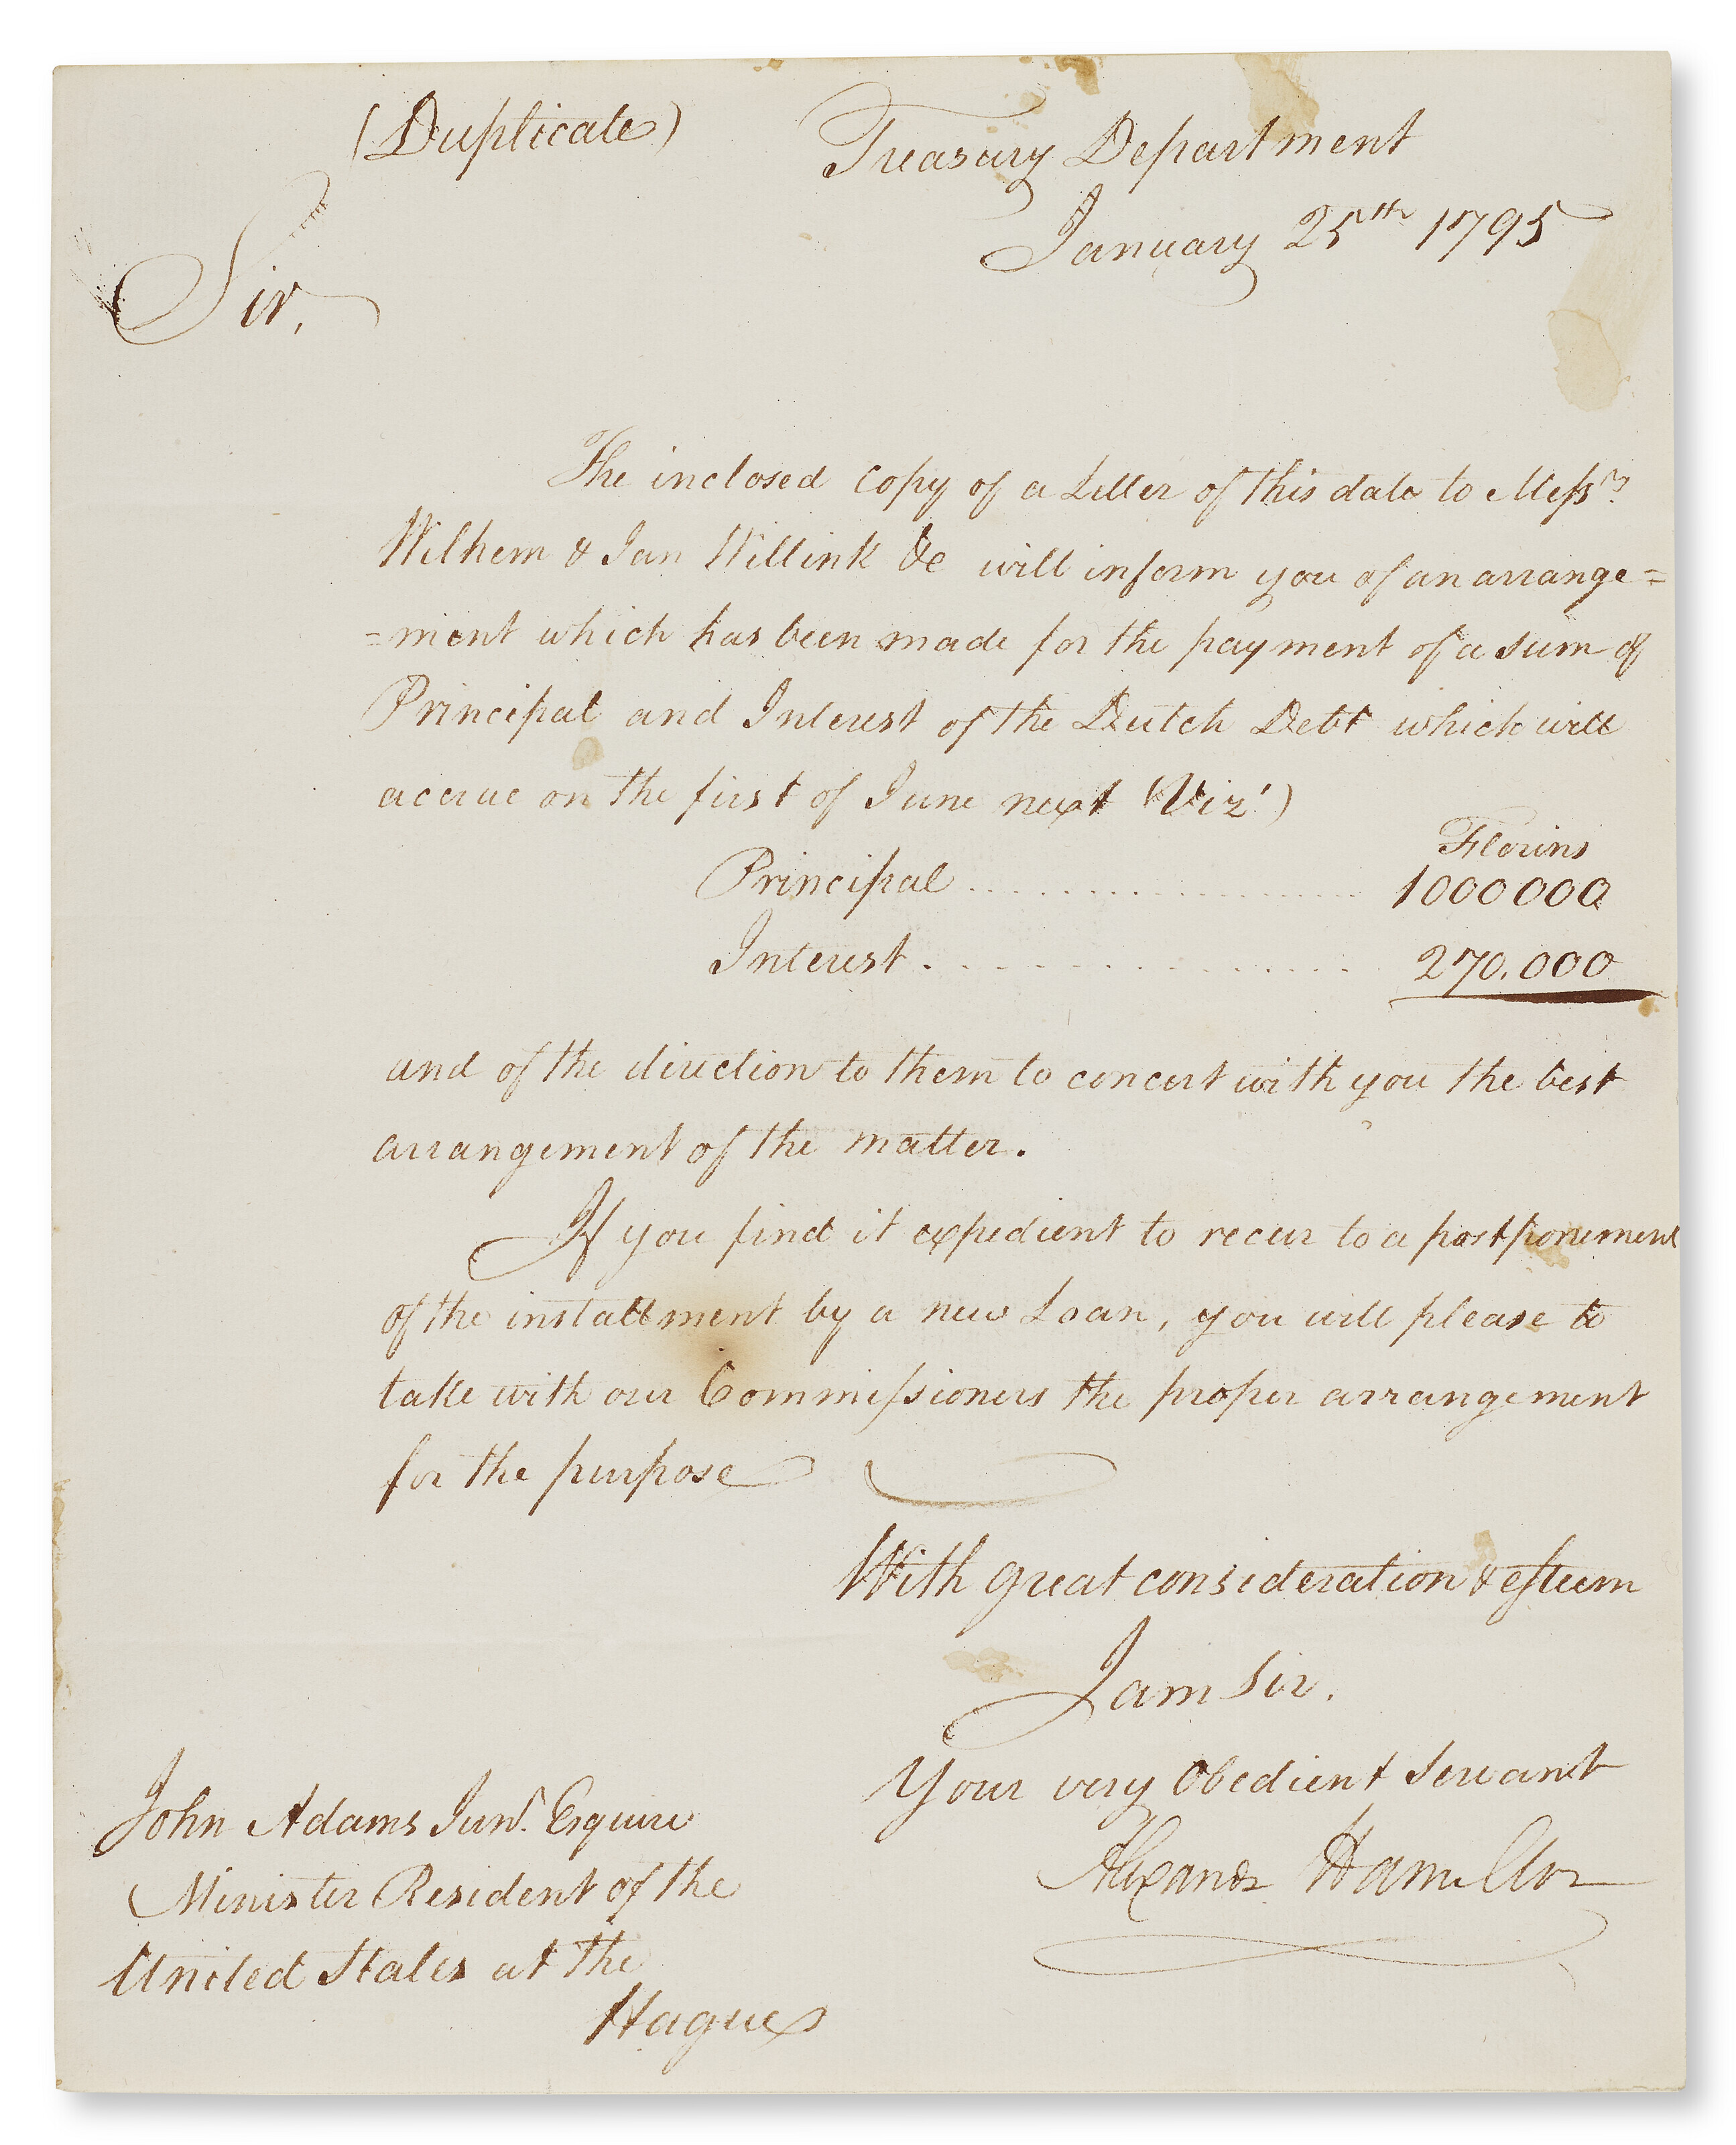 (Duplicate)
Treasury Department
January 25th 1795
Sir,
The inclosed Copy of a Letter of this date to Messrs
Wilhem & Jan Willink &c will inform you of an arrange=
=ment which has been made for the payment of a sum of
Principal and Interest of the Dutch Debt which will
accrue on the first of June next (Vizt)
Florins
Principal .................. 1000000
Interest .................. 270.000
and of the direction to them to concert with you the best
arrangement of the matter.
If you find it expedient to recur to a postponement
of the installment by a new Loan, you will please to
take with our Commissioners the proper arrangement
for the purpose
With great consideration & esteem
I am Sir.
Your very Obedient Servant
Alexander Hamilton
John Adams Junr. Esquire
Minister Resident of the
United States at the
Hague